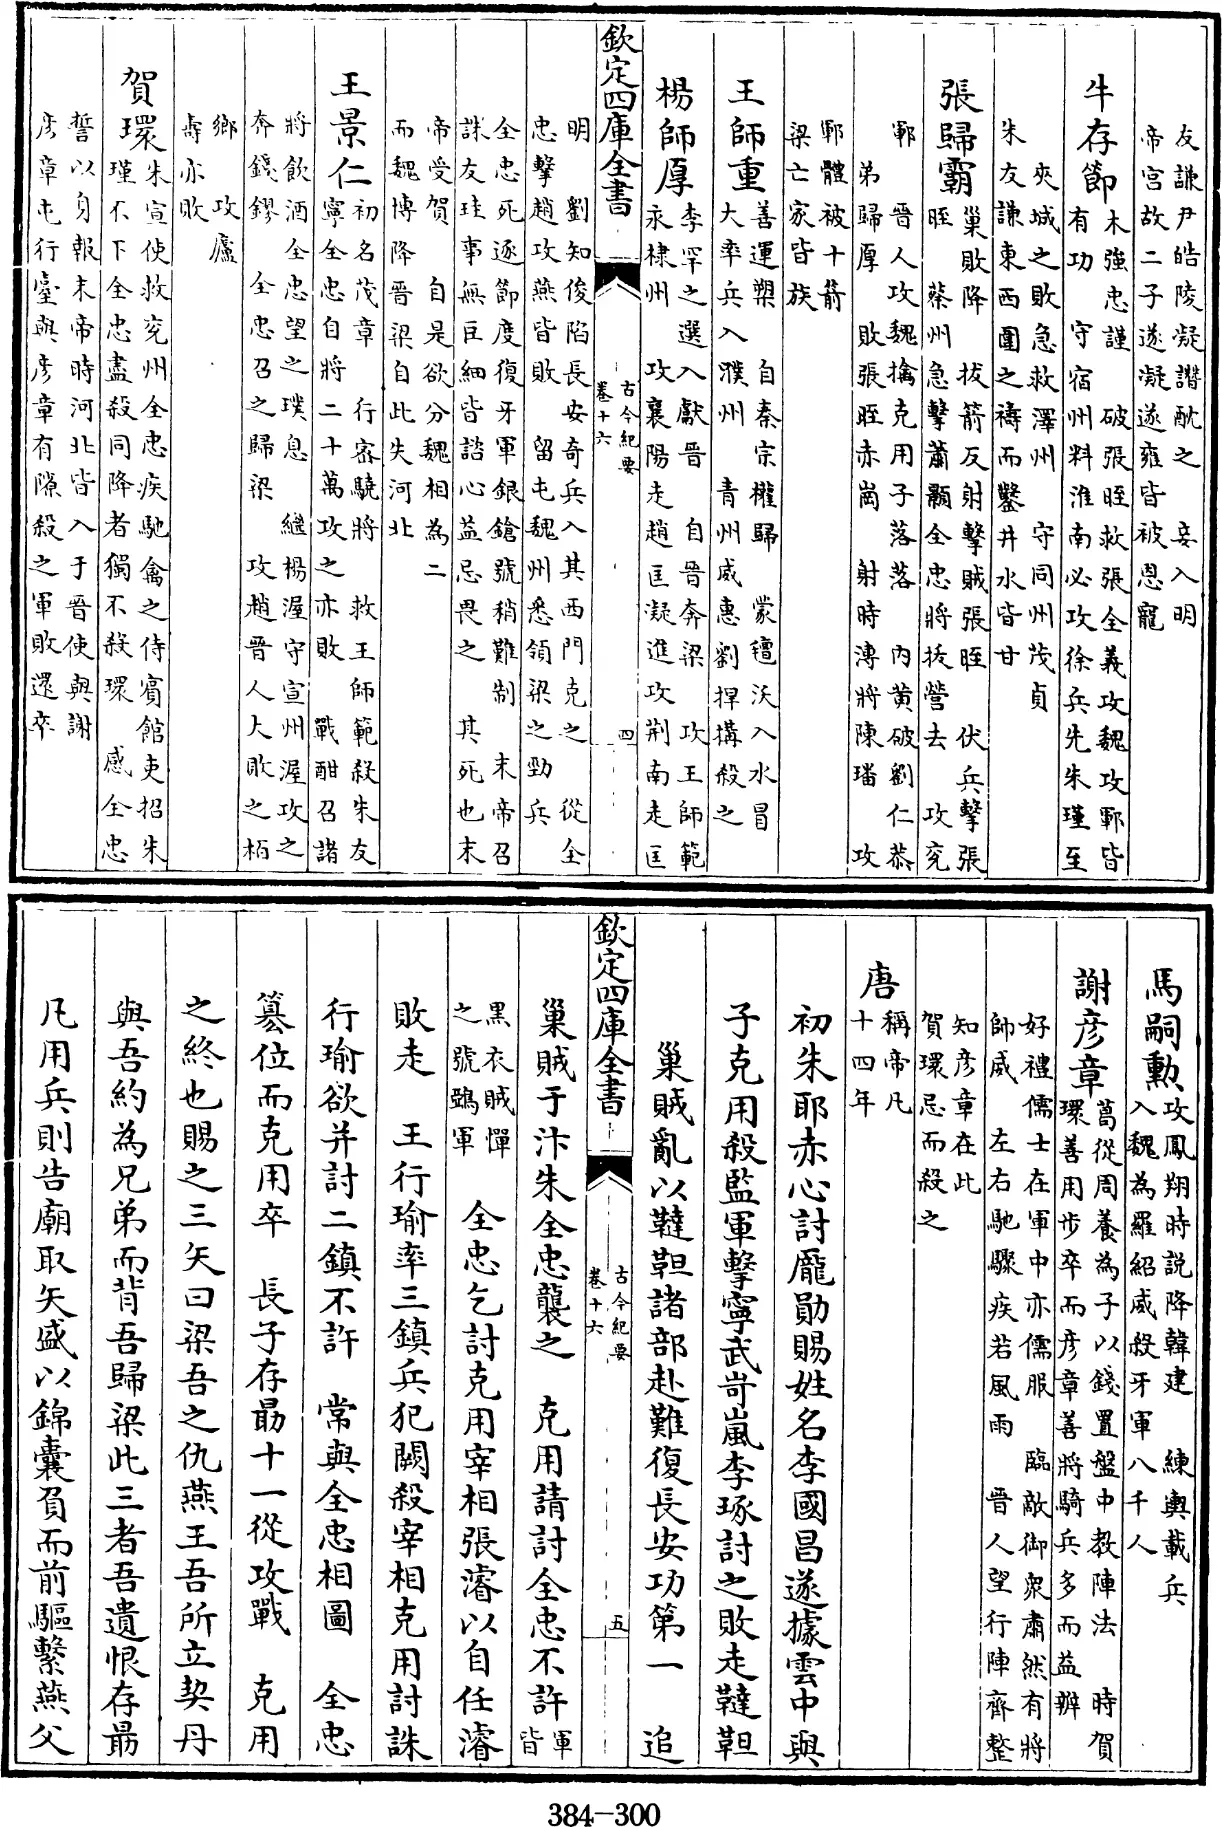 友謙尹皓陵凝譖酖之　妾入明
帝宮故二子遂凝遂雍皆被恩寵
牛存節木強忠謹　破張晊救張全義攻魏攻鄆皆
有功　守宿州料淮南必攻徐兵先朱瑾至
夾城之敗急救澤州　守同州茂貞
朱友謙東西圍之禱而鑿井水皆甘
張歸霸巢敗降　拔箭反射擊賊張晊　伏兵擊張
晊　蔡州急擊蕭顥全忠將拔營去　攻兖
鄆　晉人攻魏擒克用子落落　內黃破劉仁恭
弟歸厚　敗張晊赤崗　射時溥將陳璠　攻
鄆體被十箭
梁亡家皆族
王師重善運槊　自秦宗權歸　蒙氊沃入水冒
大率兵入濮州　青州威惠劉捍搆殺之
楊師厚李罕之選入獻晉　自晉奔梁　攻王師範
永棣州　攻襄陽走趙匡凝進攻荆南走匡
欽定四庫全書
古今紀要
卷十六
四
明　劉知俊陷長安奇兵入其西門克之　從全
忠擊趙攻燕皆敗　留屯魏州悉領梁之勁兵
全忠死逐節度復牙軍銀鎗號稍難制　末帝召
誅友珪事無巨細皆諮心益忌畏之　其死也末
帝受賀　自是欲分魏相為二
而魏博降晉梁自此失河北
王景仁初名茂章　行密驍將　救王師範殺朱友
寧全忠自將二十萬攻之亦敗　戰酣召諸
將飲酒全忠望之璞息　繼楊渥守宣州渥攻之
奔錢鏐　全忠召之歸梁　攻趙晉人大敗之栢
鄉　攻廬
壽亦敗
賀瓌朱宣使救兖州全忠疾馳禽之侍賓館吏招朱
瑾不下全忠盡殺同降者獨不殺瓌　感全忠
誓以身報末帝時河北皆入于晉使與謝
彦章屯行臺與彦章有隙殺之軍敗還卒
馬嗣勲攻鳳翔時説降韓建　練輿載兵
入魏為羅紹威殺牙軍八千人
謝彦章葛從周養為子以錢置盤中教陣法　時賀
瓌善用步卒而彦章善將騎兵多而益辦
好禮儒士在軍中亦儒服　臨敵御衆肅然有將
帥威　左右馳驟疾若風雨　晉人望行陣齊整
知彦章在此
賀瓌忌而殺之
唐稱帝凡
十四年
初朱耶赤心討龎勛賜姓名李國昌遂據雲中與
子克用殺監軍擊寧武岢嵐李琢討之敗走韃靼
巢賊亂以韃靼諸部赴難復長安功第一　追
欽定四庫全書
古今紀要
卷十六
五
巢賊于汴朱全忠襲之　克用請討全忠不許軍皆
黑衣賊憚
之號鵶軍　全忠乞討克用宰相張濬以自任濬
敗走　王行瑜率三鎮兵犯闕殺宰相克用討誅
行瑜欲并討二鎮不許　常與全忠相圖　全忠
簒位而克用卒　長子存勗十一從攻戰　克用
之終也賜之三矢曰梁吾之仇燕王吾所立契丹
與吾約為兄弟而背吾歸梁此三者吾遺恨存勗
凡用兵則告廟取矢盛以錦囊負而前驅繫燕父
384-300